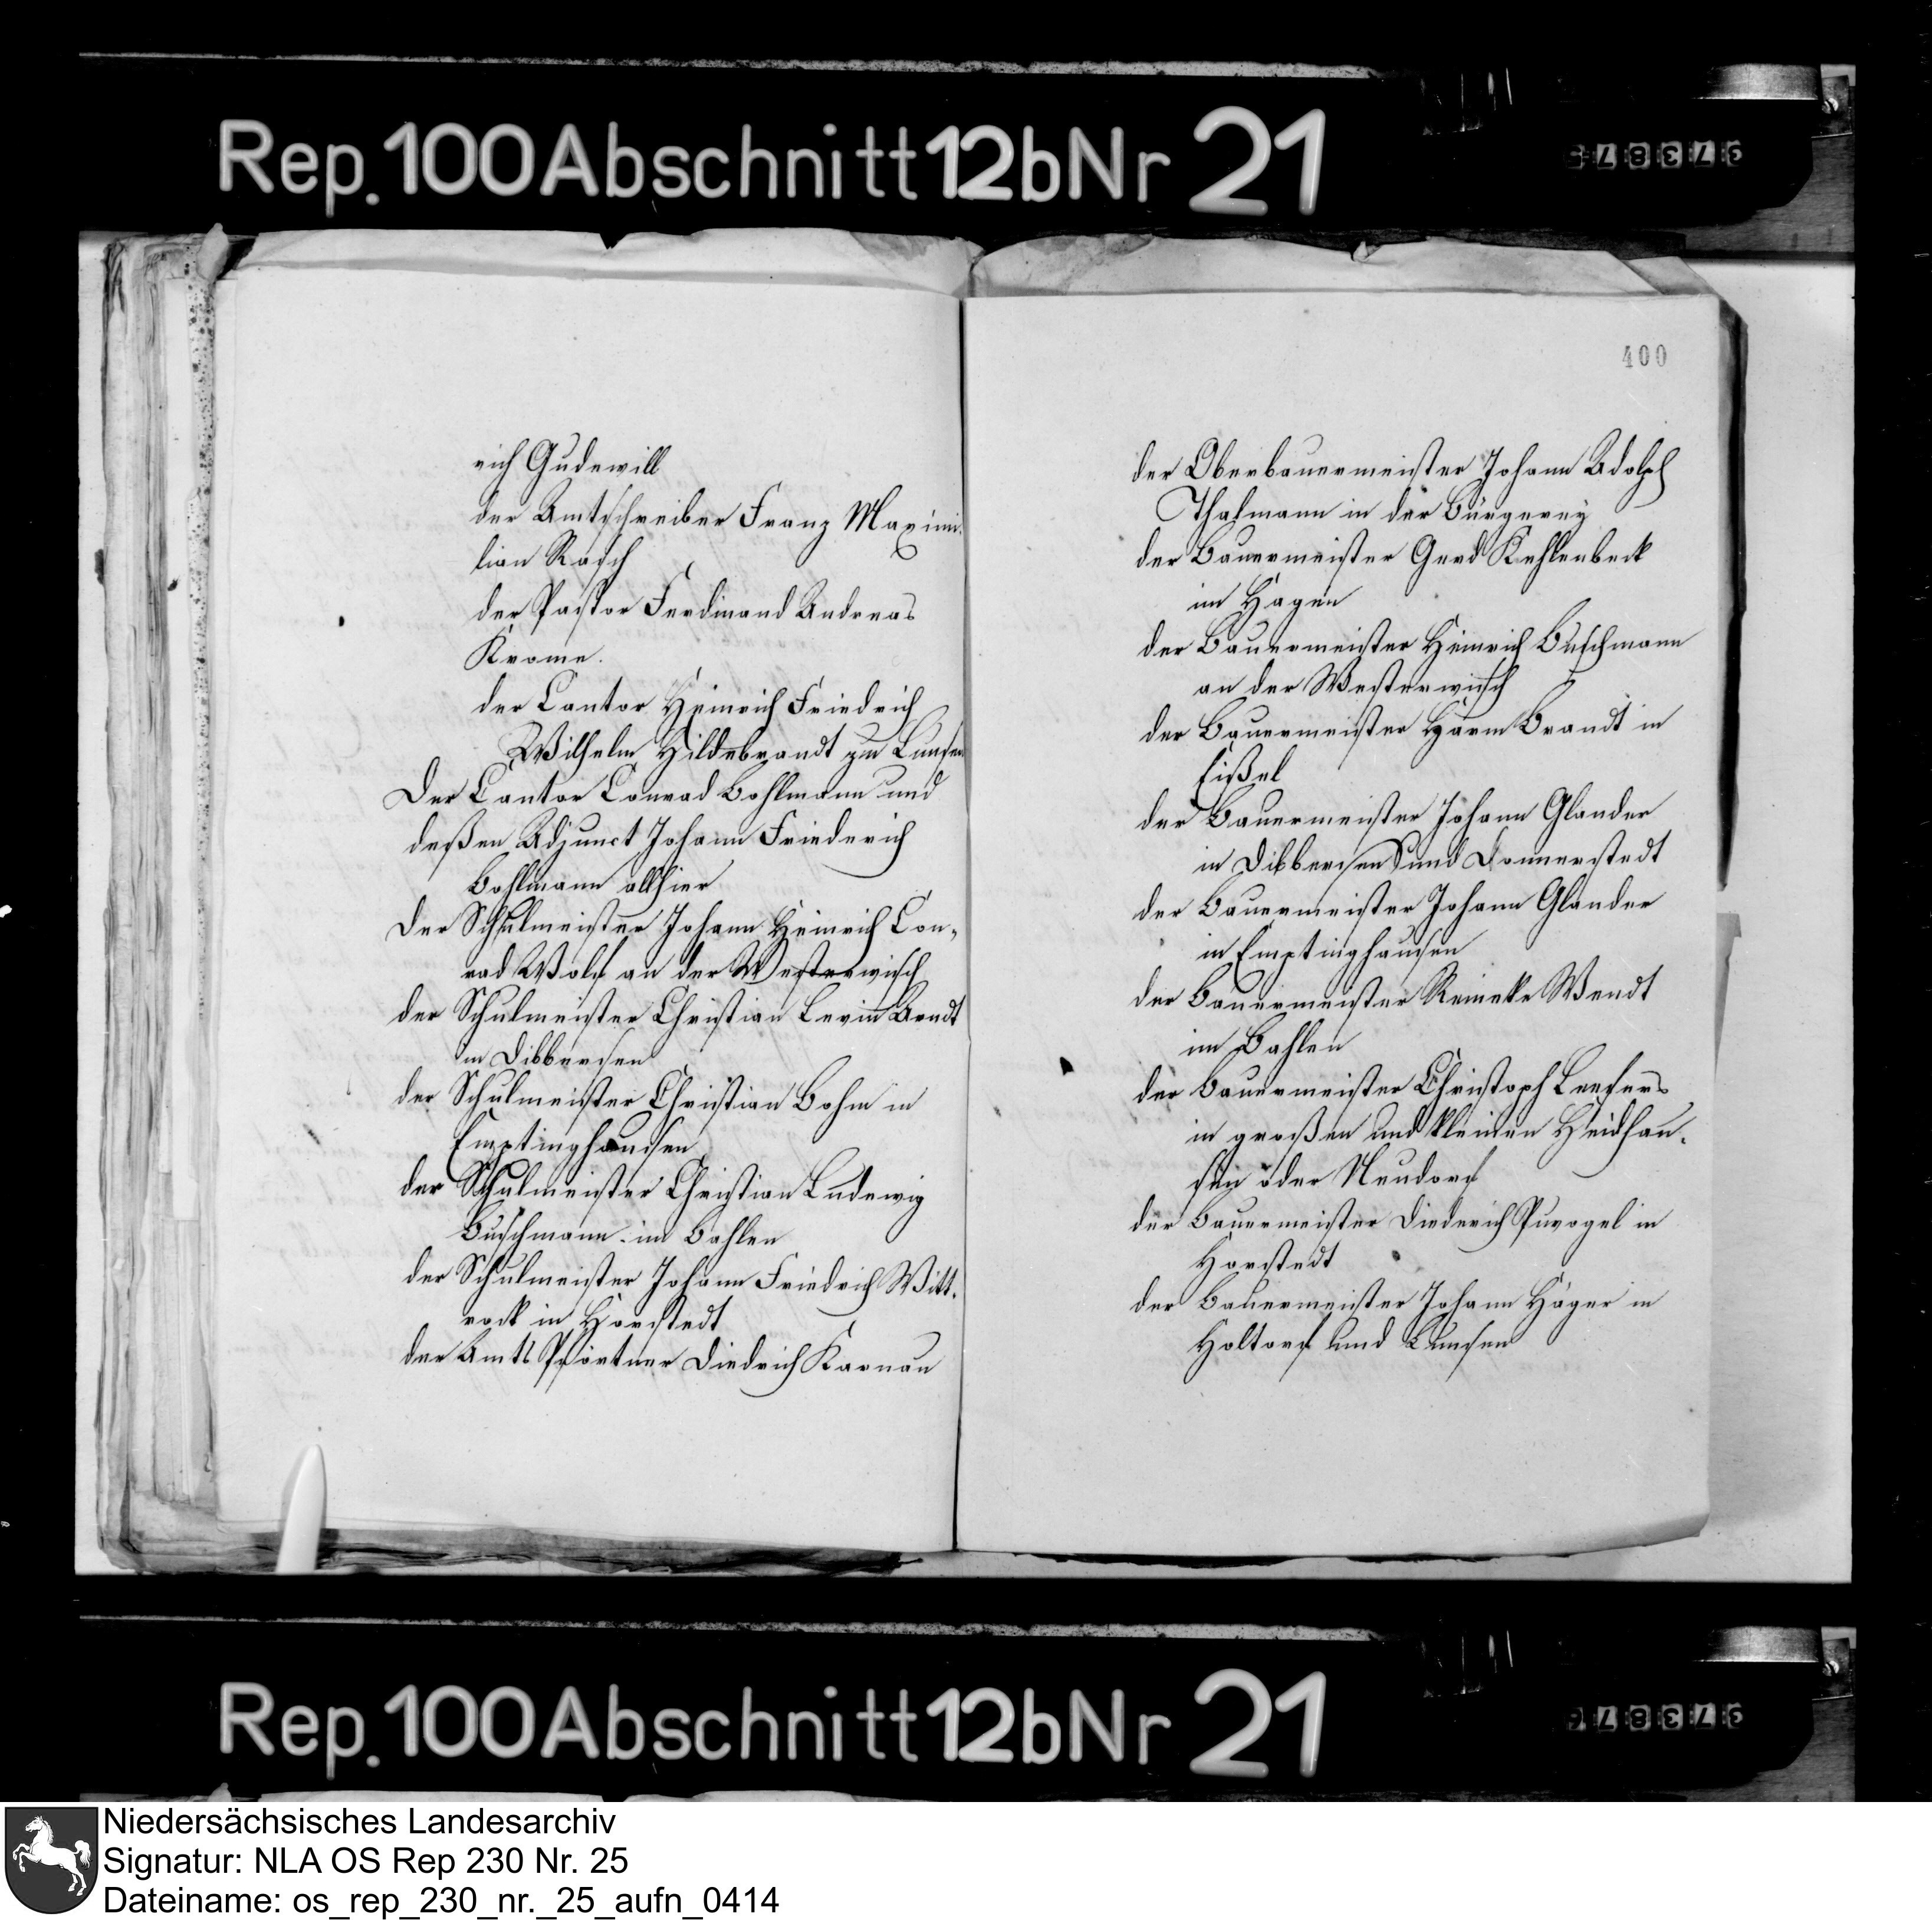 Rep. 100 Abschnitt 12b Nr 21
rich Gudewill
der Amtschreiber Franz Maximi-
lian Rasch
der Pastor Ferdinand Andreas
Krome.
der Cantor Heinrich Friedrich
Wilhelm Hildebrandt zu Lunsen
Der Cantor Conrad Bohlmann und
deßen Adjunct Johann Friederich
Bohlmann allhier
Der Schulmeister Johann Heinrich Con-
rad Wolf an der Westerwisch
der Schulmeister Christian Levin Arndt
in Dibbersen
der Schulmeister Christian Bohm in
Emptinghausen
der Schulmeister Christian Ludewig
Buschmann im Bahlen
der Schulmeister Johann Friedrich Witt-
rock in Horstedt
der Amts Pförtner Diedrich Karnau
400
der Oberbauermeister Johann Adolph
Thalmann in der Bürgerey
der Bauermeister Gerd Kehlenbeck
im Hagen
der Bauermeister Heinrich Buschmann
an der Westerwisch
der Bauermeister Harm Brandt in
Eißel
der Bauermeister Johann Glander
in Dibbersen und Donnerstedt
der Bauermeister Johann Glander
in Emptinghausen
der Bauermeister Reineke Wendt
im Bahlen
der Bauermeister Christoph Leefers
in großen und kleinen Heidhau-
sen oder Neudorf
der Bauermeister Diederich Puvogel in
Horstedt
der Bauermeister Johann Häger in
Holtorf und Lunsen
Rep. 100 Abschnitt 12b Nr 21
Niedersächsisches Landesarchiv
Signatur: NLA OS Rep 230 Nr. 25
Dateiname: os_rep_230_nr._25_aufn_0414